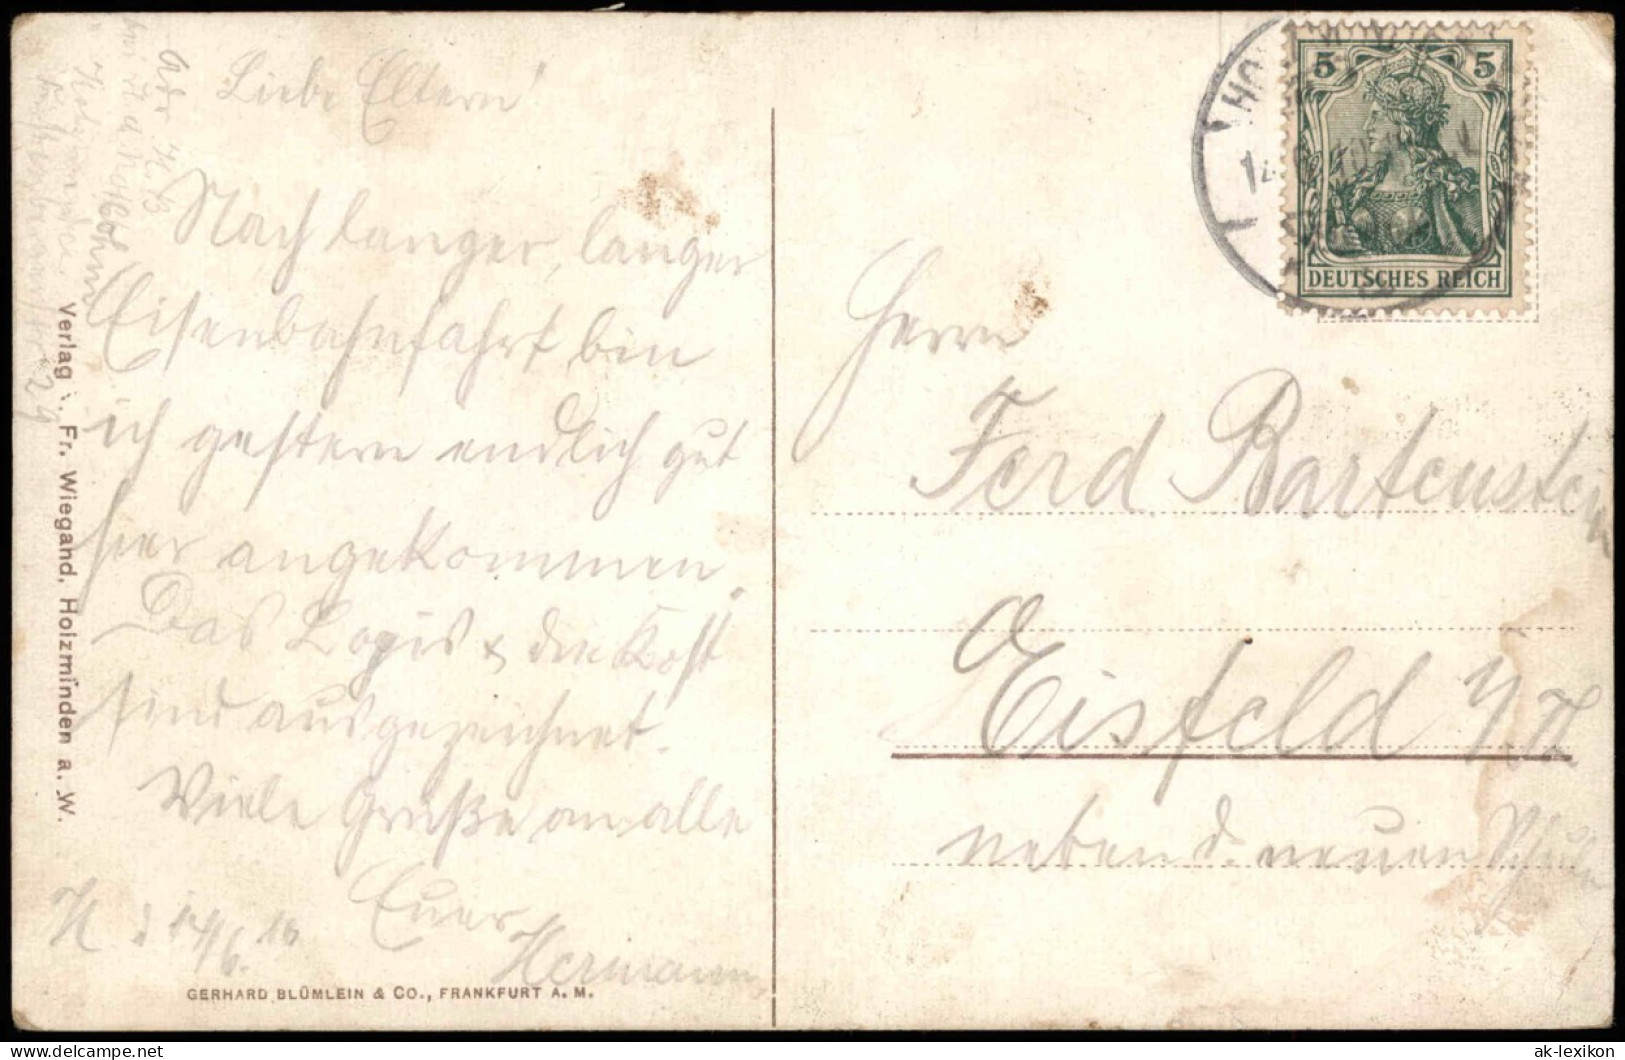 Liebe Eltern!
Nach langer, langer
Eisenbahnfahrt bin
ich gestern endlich gut
hier angekommen.
Das Logis & die Kost
sind ausgezeichnet.
Viele Grüße an alle
Euer
Hermann
H. d 14/6. 10
Holzminden
29
Verlag v. Fr. Wiegand, Holzminden a. W.
GERHARD BLÜMLEIN & CO., FRANKFURT A. M.
5 5
DEUTSCHES REICH
HO
14
Herrn
Ferd Bartenstein
Eisfeld
neben d. neuen
ak-lexikon